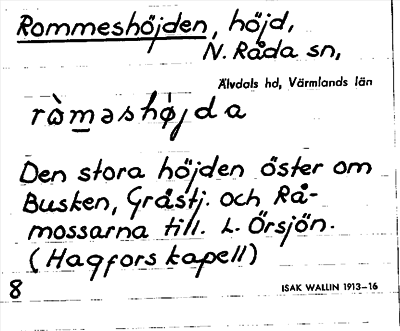 Rommeshöjden, höjd,
N. Råda sn,
Älvdals hd, Värmlands län
ròməshø̀jda
Den stora höjden öster om
Busken, Gråstj. och Rå-
mossarna till. L. Örsjön.
(Hagfors kapell)
8
ISAK WALLIN 1913-16